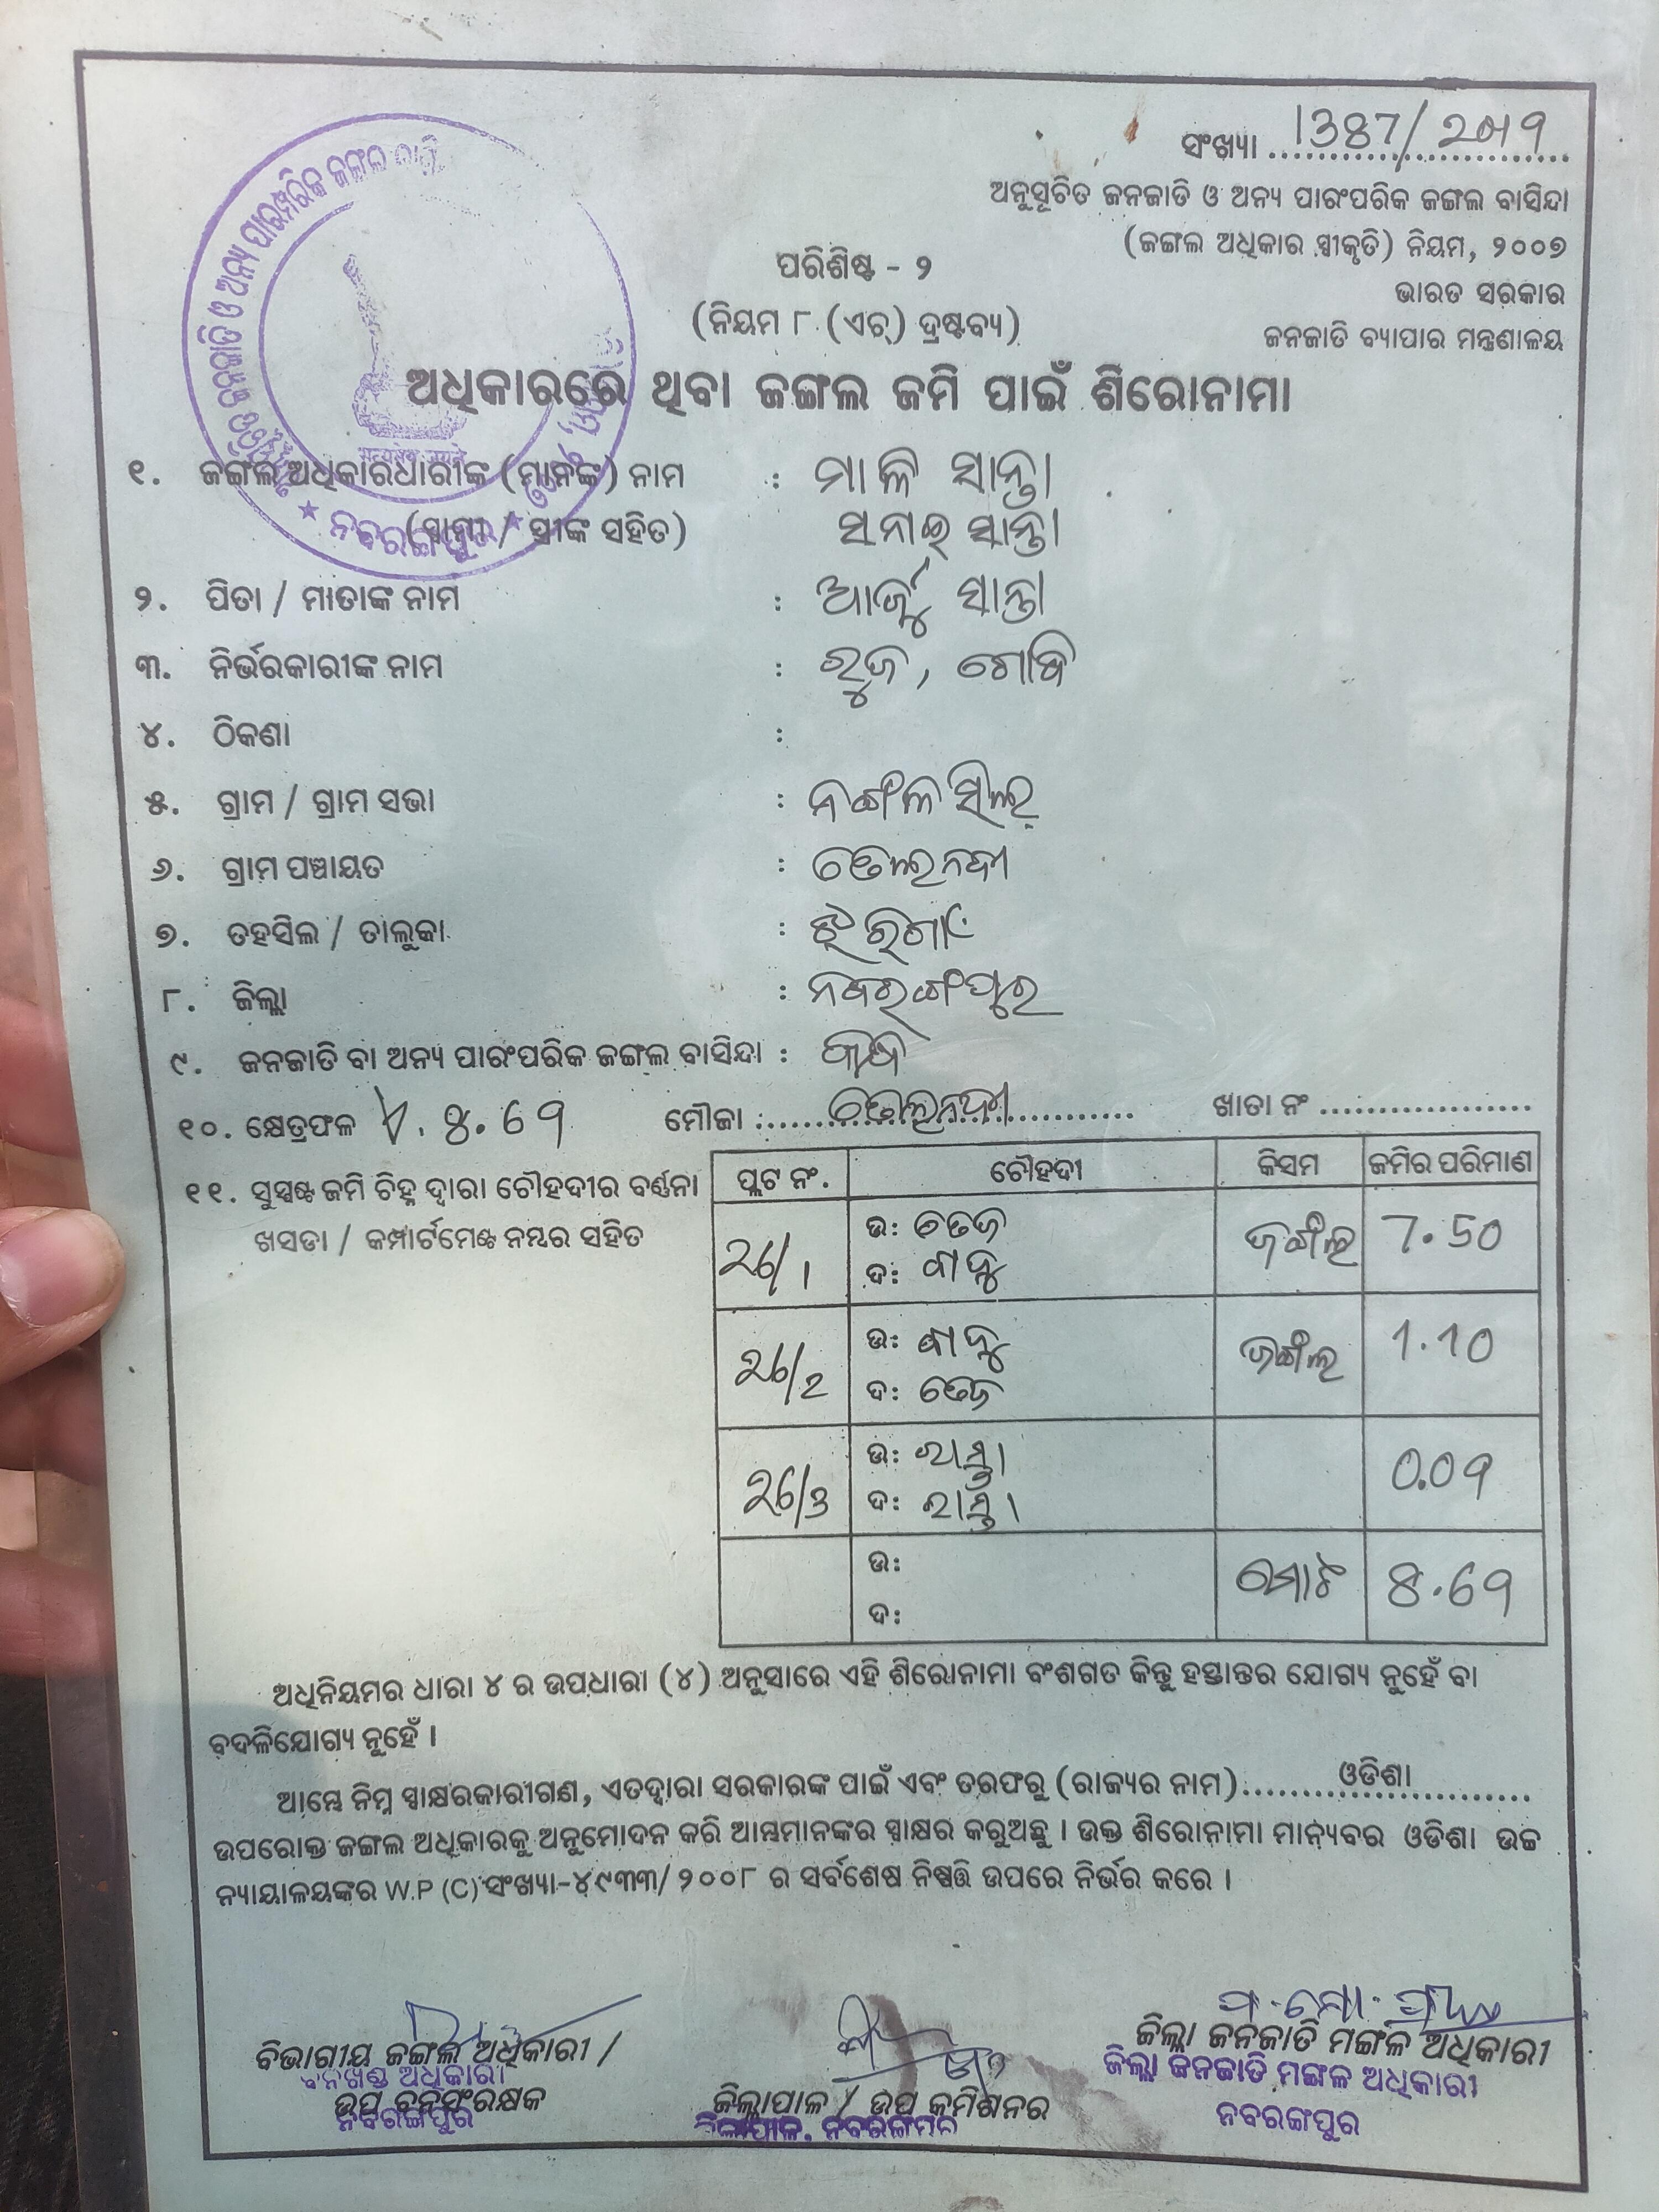 ସଂଖ୍ୟା 1387/
ଅନୁସୂଚିତ ଜନଜାତି ଓ ଅନ୍ୟ ପାରଂପରିକ ଜଙ୍ଗଲ ବାସିନ୍ଦା
(ଜଙ୍ଗଲ ଅଧିକାର ସ୍ୱୀକୃତି) ନିୟମ, ୨୦୦୭
ଭାରତ ସରକାର
ଜନଜାତି ବ୍ୟାପାର ମନ୍ତ୍ରଣାଳୟ
ପରିଶିଷ୍ଟ - ୨
(ନିୟମ ୮ (ଏଚ୍) ଦ୍ରଷ୍ଟବ୍ୟ)
ଅଧିକାରରେ ଥିବା ଜଙ୍ଗଲ ଜମି ପାଇଁ ଶିରୋନାମା
ଜନଜାତି ଓ ଅନ୍ୟ ପାରମ୍ପରିକ ଜଙ୍ଗଲ
ନବରଙ୍ଗପୁର
୧. ଜଙ୍ଗଲ ଅଧିକାରଧାରୀଙ୍କ (ମାନଙ୍କ) ନାମ : ମାଳି ସାନ୍ତା
(ସ୍ୱାମୀ / ସ୍ତ୍ରୀଙ୍କ ସହିତ) ସନାଇ ସାନ୍ତା
୨. ପିତା / ମାତାଙ୍କ ନାମ : ଆର୍ଜୁ ସାନ୍ତା
୩. ନିର୍ଭରକାରୀଙ୍କ ନାମ :
୪. ଠିକଣା :
୫. ଗ୍ରାମ / ଗ୍ରାମ ସଭା :
୬. ଗ୍ରାମ ପଞ୍ଚାୟତ : ତେଲନଦୀ
୭. ତହସିଲ / ତାଲୁକା : ଝରିଗାଁ
୮. ଜିଲ୍ଲା : ନବରଙ୍ଗପୁର
୯. ଜନଜାତି ବା ଅନ୍ୟ ପାରଂପରିକ ଜଙ୍ଗଲ ବାସିନ୍ଦା :
୧୦. କ୍ଷେତ୍ରଫଳ ମୌଜା : ତେଲନଦୀ ଖାତା ନଂ
୧୧. ସୁସ୍ପଷ୍ଟ ଜମି ଚିହ୍ନ ଦ୍ୱାରା ଚୌହଦୀର ବର୍ଣ୍ଣନା
ଖସଡା / କମ୍ପାର୍ଟମେଣ୍ଟ ନମ୍ବର ସହିତ
ପ୍ଲଟ ନଂ. ଚୌହଦୀ କିସମ ଜମିର ପରିମାଣ
ଉ: ଜଙ୍ଗଲ 7.50
ଦ:
ଉ: ଜଙ୍ଗଲ 1.10
ଦ:
ଉ: ରାସ୍ତା 0.0୨
ଦ: ରାସ୍ତା
ଉ: ମୋଟ
ଦ:
ଅଧିନିୟମର ଧାରା ୪ ର ଉପଧାରା (୪) ଅନୁସାରେ ଏହି ଶିରୋନାମା ବଂଶଗତ କିନ୍ତୁ ହସ୍ତାନ୍ତର ଯୋଗ୍ୟ ନୁହେଁ ବା
ବଦଳିଯୋଗ୍ୟ ନୁହେଁ ।
ଆମ୍ଭେ ନିମ୍ନ ସ୍ୱାକ୍ଷରକାରୀଗଣ, ଏତଦ୍ୱାରା ସରକାରଙ୍କ ପାଇଁ ଏବଂ ତରଫରୁ (ରାଜ୍ୟର ନାମ) ଓଡିଶା
ଉପରୋକ୍ତ ଜଙ୍ଗଲ ଅଧିକାରକୁ ଅନୁମୋଦନ କରି ଆମ୍ଭମାନଙ୍କର ସ୍ୱାକ୍ଷର କରୁଅଛୁ । ଉକ୍ତ ଶିରୋନାମା ମାନ୍ୟବର ଓଡିଶା ଉଚ୍ଚ
ନ୍ୟାୟାଳୟଙ୍କର W.P (C) ସଂଖ୍ୟା-୪୯୩୩/୨୦୦୮ ର ସର୍ବଶେଷ ନିଷ୍ପତ୍ତି ଉପରେ ନିର୍ଭର କରେ ।
ବିଭାଗୀୟ ଜଙ୍ଗଲ ଅଧିକାରୀ /
ବନଖଣ୍ଡ ଅଧିକାରୀ
ଉପ ବନସଂରକ୍ଷକ
ନବରଙ୍ଗପୁର
ଜିଲ୍ଲାପାଳ / ଉପ କମିଶନର
ଜିଲ୍ଲାପାଳ, ନବରଙ୍ଗପୁର
ଜିଲ୍ଲା ଜନଜାତି ମଙ୍ଗଳ ଅଧିକାରୀ
ଜିଲ୍ଲା ଜନଜାତି ମଙ୍ଗଳ ଅଧିକାରୀ
ନବରଙ୍ଗପୁର